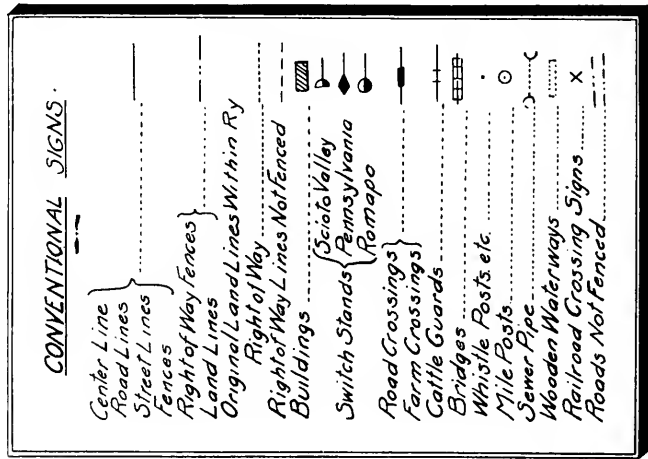 CONVENTIONAL SIGNS.
Center Line
Road Lines
Street Lines
Fences
Right of Way Fences
Land Lines
Original Land Lines Within Ry
Right of Way
Right of Way Lines Not Fenced
Buildings
Switch Stands
Scioto Valley
Pennsylvania
Romapo
Road Crossings
Farm Crossings
Cattle Guards
Bridges
Whistle Posts. etc.
Mile Posts
Sewer Pipe
Wooden Waterways
Railroad Crossing Signs
Roads Not Fenced